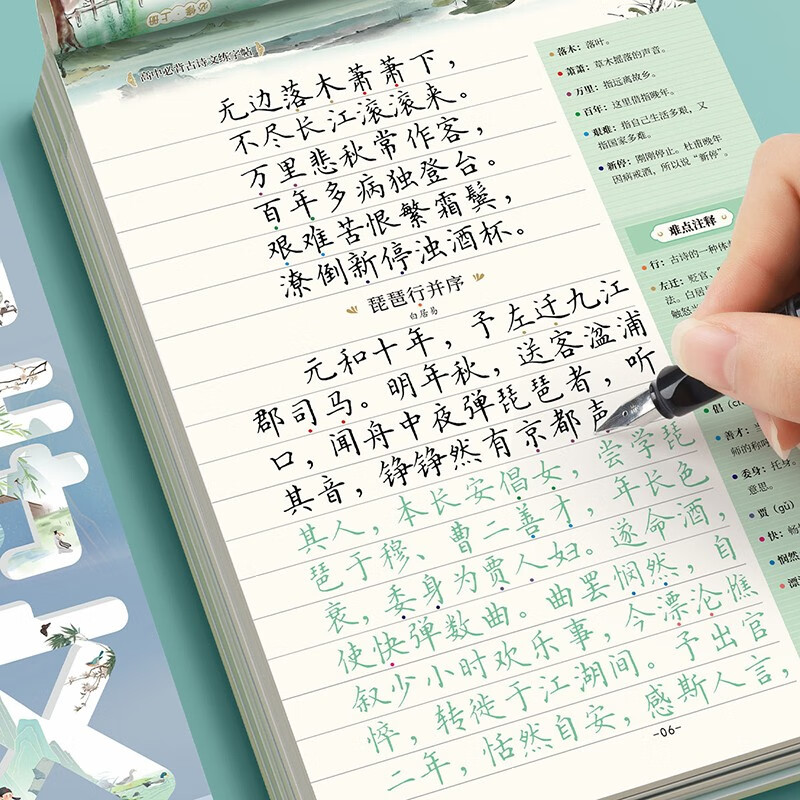 必修上册
高中必背古诗文练字帖
无边落木萧萧下，
不尽长江滚滚来。
万里悲秋常作客，
百年多病独登台。
艰难苦恨繁霜鬓，
潦倒新停浊酒杯。
琵琶行并序
白居易
元和十年，予左迁九江
郡司马。明年秋，送客湓浦
口，闻舟中夜弹琵琶者，听
其音，铮铮然有京都声
其人，本长安倡女，尝学琵
琶于穆、曹二善才，年长色
衰，委身为贾人妇。遂命酒，
使快弹数曲。曲罢悯然，自
叙少小时欢乐事，今漂沦憔
悴，转徙于江湖间。予出官
二年，恬然自安，感斯人言，
-06-
落木：落叶。
萧萧：草木摇落的声音。
万里：指远离故乡。
百年：这里借指晚年。
艰难：指自己生活多艰，又
指国家多难。
新停：刚刚停止。杜甫晚年
因病戒酒，所以说“新停”。
难点注释
行：古诗的一种体
左迁：贬官、
法。白居
触怒
倡（ch
善才：
师的称呼
委身：托身，
意思。
贾（gǔ）
快：畅
悯然
漂